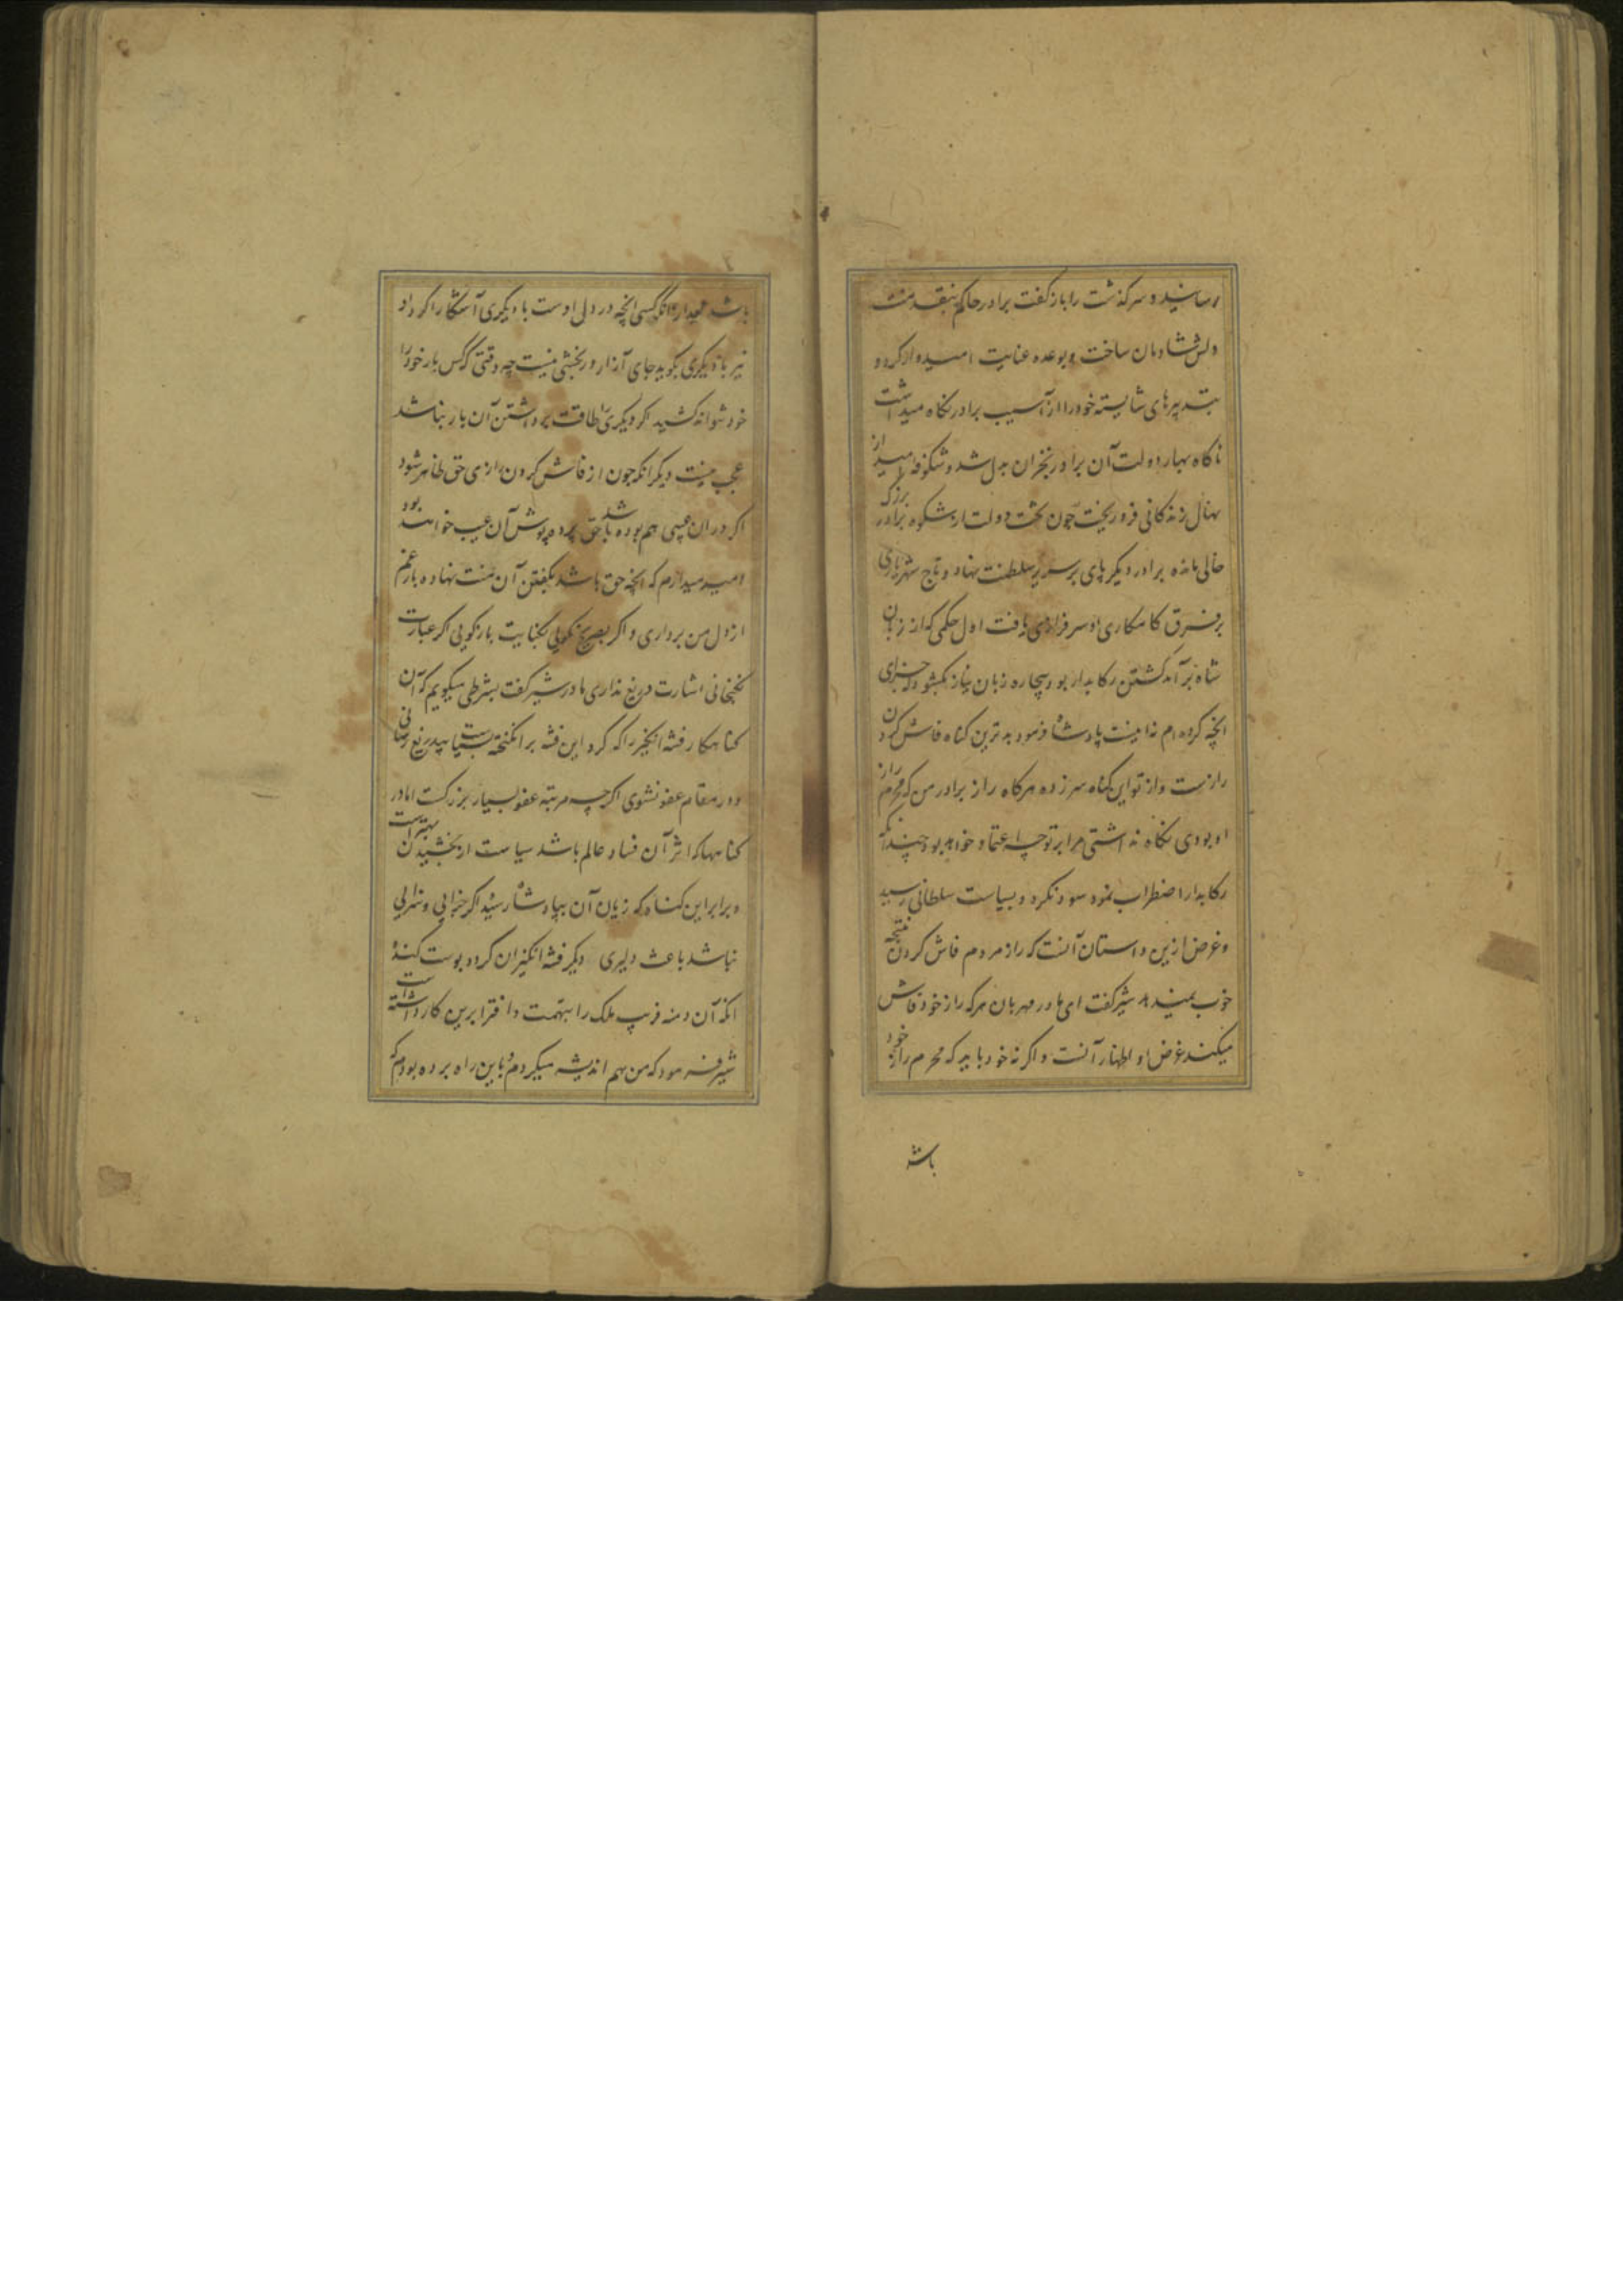 رسانید و سرگذشت را بازگفت برادر حاکم بنقد منت
دلش شادمان ساخت و بوعده عنایت امیدوار کرد و
بتدبیرهای شایسته خود را از آسیب برادر نگاه میداشت
ناگاه بهار دولت آن برادر بخزان بدل شد و شکوفه امید از
نهال زندگانی فرو ریخت چون تخت دولت از شکوه برادر بزرگ
خالی مانده برادر دیگر پای بر سریر سلطنت نهاد و تاج شهریاری
بر فرق کامکاری او سرفرازی یافت اول حکمی که از زبان
شاه برآمد کشتن رکابدار بود بیچاره زبان نیاز بکشود که جزای
آنچه کرده ام نه اینست پادشاه فرمود بدترین گناه فاش کردن
رازست و از تو این گناه سر زده هرگاه راز برادر من که محرم راز
او بودی نگاه نداشتی مرا بر تو چه اعتماد خواهد بود چندانکه
رکابدار اضطراب نمود سود نکرد و بسیاست سلطانی رسید
و غرض ازین داستان آنست که راز مردم فاش کردن نتیجه
خوب نمیدهد شیر گفت ای مادر مهربان هرکه راز خود فاش
میکند غرض او اظهار آنست و اگر نه خود باید که محرم راز خود
باشد
باشد دیگر آنکه کسی آنچه در دل اوست با دیگری آشکارا کرد او
نیز با دیگری بگوید جای آزار و رنجش نیست چه وقتی که کس بار خود را
خود نتواند کشید اگر دیگری را طاقت برداشتن آن بار نباشد
عجب نیست دیگر آنکه چون از فاش کردن رازی حق ظاهر شود
اگر در آن عیبی هم بوده باشد حق پرده پوش آن عیب خواهد بود
امید میدارم که آنچه حق باشد بگفتن آن منت نهاده بار غم
از دل من برداری و اگر بصریح نگویی بکنایت بازگویی اگر عبارت
نگنجانی اشارت دریغ نداری مادر شیر گفت بشرطی میگویم که آن
گناهکار فتنه انگیز را که گرد این فتنه برانگیخته بسیاست بیدریغ رسانی
و در مقام عفو نشوی اگرچه مرتبه عفو بسیار بزرگست اما در
گناهها که اثر آن فساد عالم باشد سیاست از بخشیدن بهتر است
و برابر این گناه که زیان آن بپادشاه رسید اگر جزایی و سزایی
نباشد باعث دلیری دیگر فتنه انگیزان گردد پوست کنده
آنکه آن دمنه فریب ملک را بتهمت و افترا برین کار داشته است
شیر فرمود که من هم اندیشه میکردم و باین راه برده بودم که